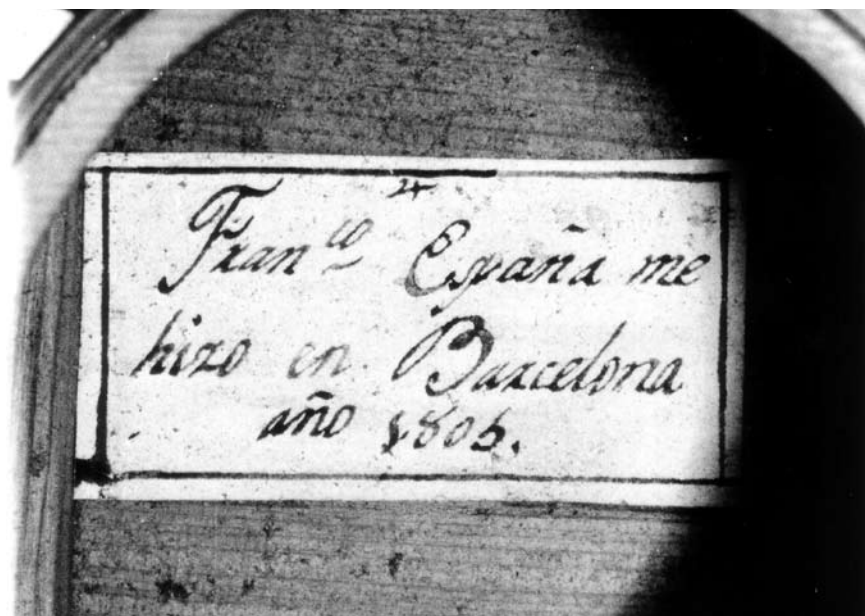 Fran.co España me
hizo en Barcelona
año 1805.